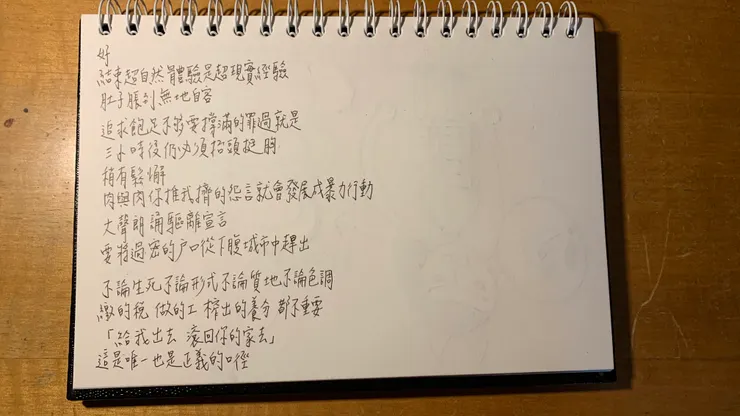 好
結束超自然體驗是超現實經驗
肚子脹到無地自容
追求飽足不夠要撐滿的罪過就是
三小時後仍必須抬頭挺胸
稍有鬆懈
肉與肉你推我擠的怨言就會發展成暴力行動
大聲朗誦驅離宣言
要將過密的戶口從下腹城市中趕出
不論生死不論形式不論質地不論色調
繳的稅 做的工 榨出的養分 都不重要
「給我出去 滾回你的家去」
這是唯一也是正義的口徑